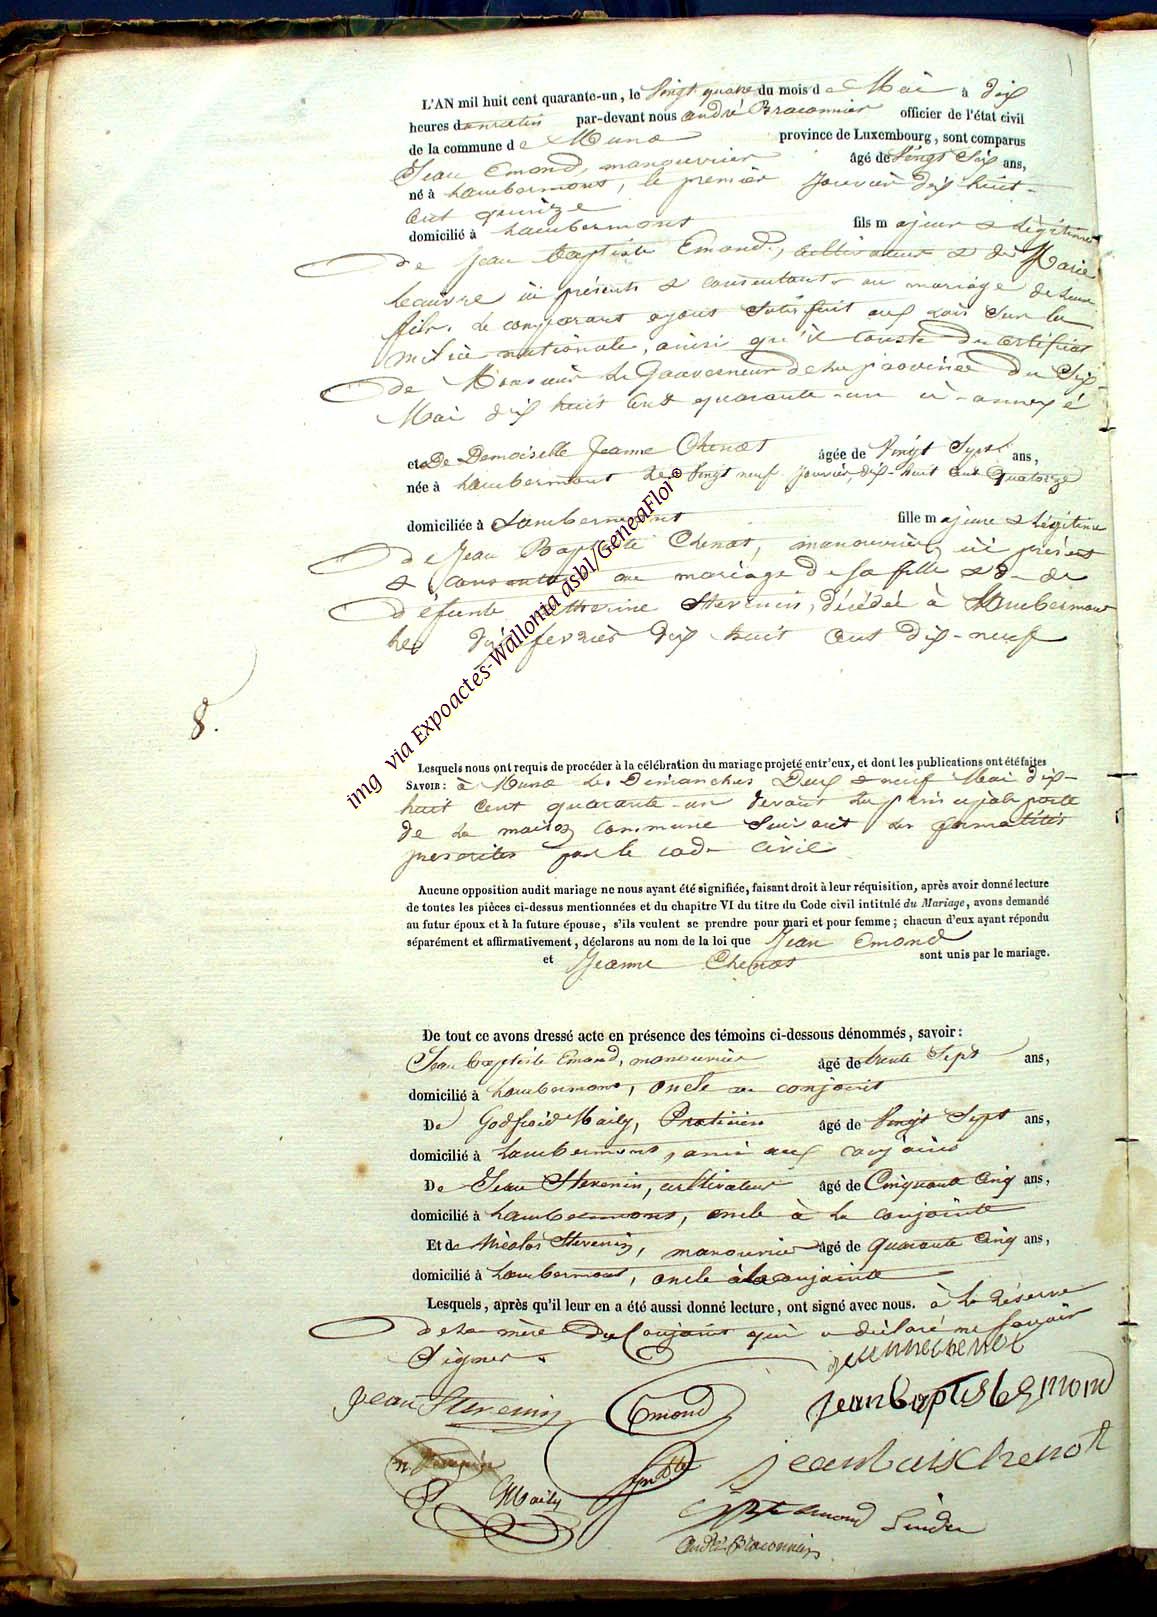 L'AN mil huit cent quarante-un, le Vingt quatre du mois de Mai à dix
heures du matin par-devant nous andré Braconnier officier de l'état civil
de la commune de Muno province de Luxembourg, sont comparus
Jean Emond, manouvrier âgé de Vingt Six ans,
né à Lambermont, le premier Janvier dix huit
cent quinze
domicilié à Lambermont fils majeur & légitime
de Jean Baptiste Emond, cultivateur & de Marie
Lecuivre ici présents & consentants au mariage de leur
fils. Le comparant ayant Satisfait aux Lois Sur la
milice nationale, ainsi qu'il conste du certificat
de Monsieur Le Gouverneur de la province du Six
Mai dix huit Cent quarante-un ci-annexé
et De Demoiselle Jeanne Chenot âgée de Vingt Sept ans,
née à Lambermont le Vingt neuf Janvier, dix-huit cent Quatorze
domiciliée à Lambermont fille majeure & Légitime
de Jean Baptiste Chenot, manouvrier ici présent
& consentant au mariage de sa fille & de
défunte Stevenin, décédée à Lambermont
Le fevrier dix huit Cent dix-neuf
8.
img via Expoactes-Wallonia asbl/GeneaFlor®
Lesquels nous ont requis de procéder à la célébration du mariage projeté entr'eux, et dont les publications ont été faites
SAVOIR : à Muno Les Dimanches Deux & neuf Mai dix-
huit Cent quarante-un devant La principale porte
de La maison Commune Suivant les formalités
prescrites par le code Civil
Aucune opposition audit mariage ne nous ayant été signifiée, faisant droit à leur réquisition, après avoir donné lecture
de toutes les pièces ci-dessus mentionnées et du chapitre VI du titre du Code civil intitulé du Mariage, avons demandé
au futur époux et à la future épouse, s'ils veulent se prendre pour mari et pour femme ; chacun d'eux ayant répondu
séparément et affirmativement, déclarons au nom de la loi que Jean Emond
et Jeanne Chenot sont unis par le mariage.
De tout ce avons dressé acte en présence des témoins ci-dessous dénommés, savoir :
Jean baptiste Emond, manouvrier âgé de trente Sept ans,
domicilié à Lambermont, oncle au conjoint
De Godfroid Maily, Praticien âgé de Vingt Sept ans,
domicilié à Lambermont, ami aux conjoints
De Jean Stevenin, cultivateur âgé de Cinquante Cinq ans,
domicilié à Lambermont, oncle à La conjointe
Et de Nicolas Stevenin, manouvrier âgé de quarante Cinq ans,
domicilié à Lambermont, oncle à la conjointe
Lesquels, après qu'il leur en a été aussi donné lecture, ont signé avec nous. à La réserve
de La mère Du Conjoint qui a déclaré ne Savoir
Signer.
jeannechenot
Jean Stevenin Emond jean baptiste Emond
GMaily Chenot
Emond
André Braconnier